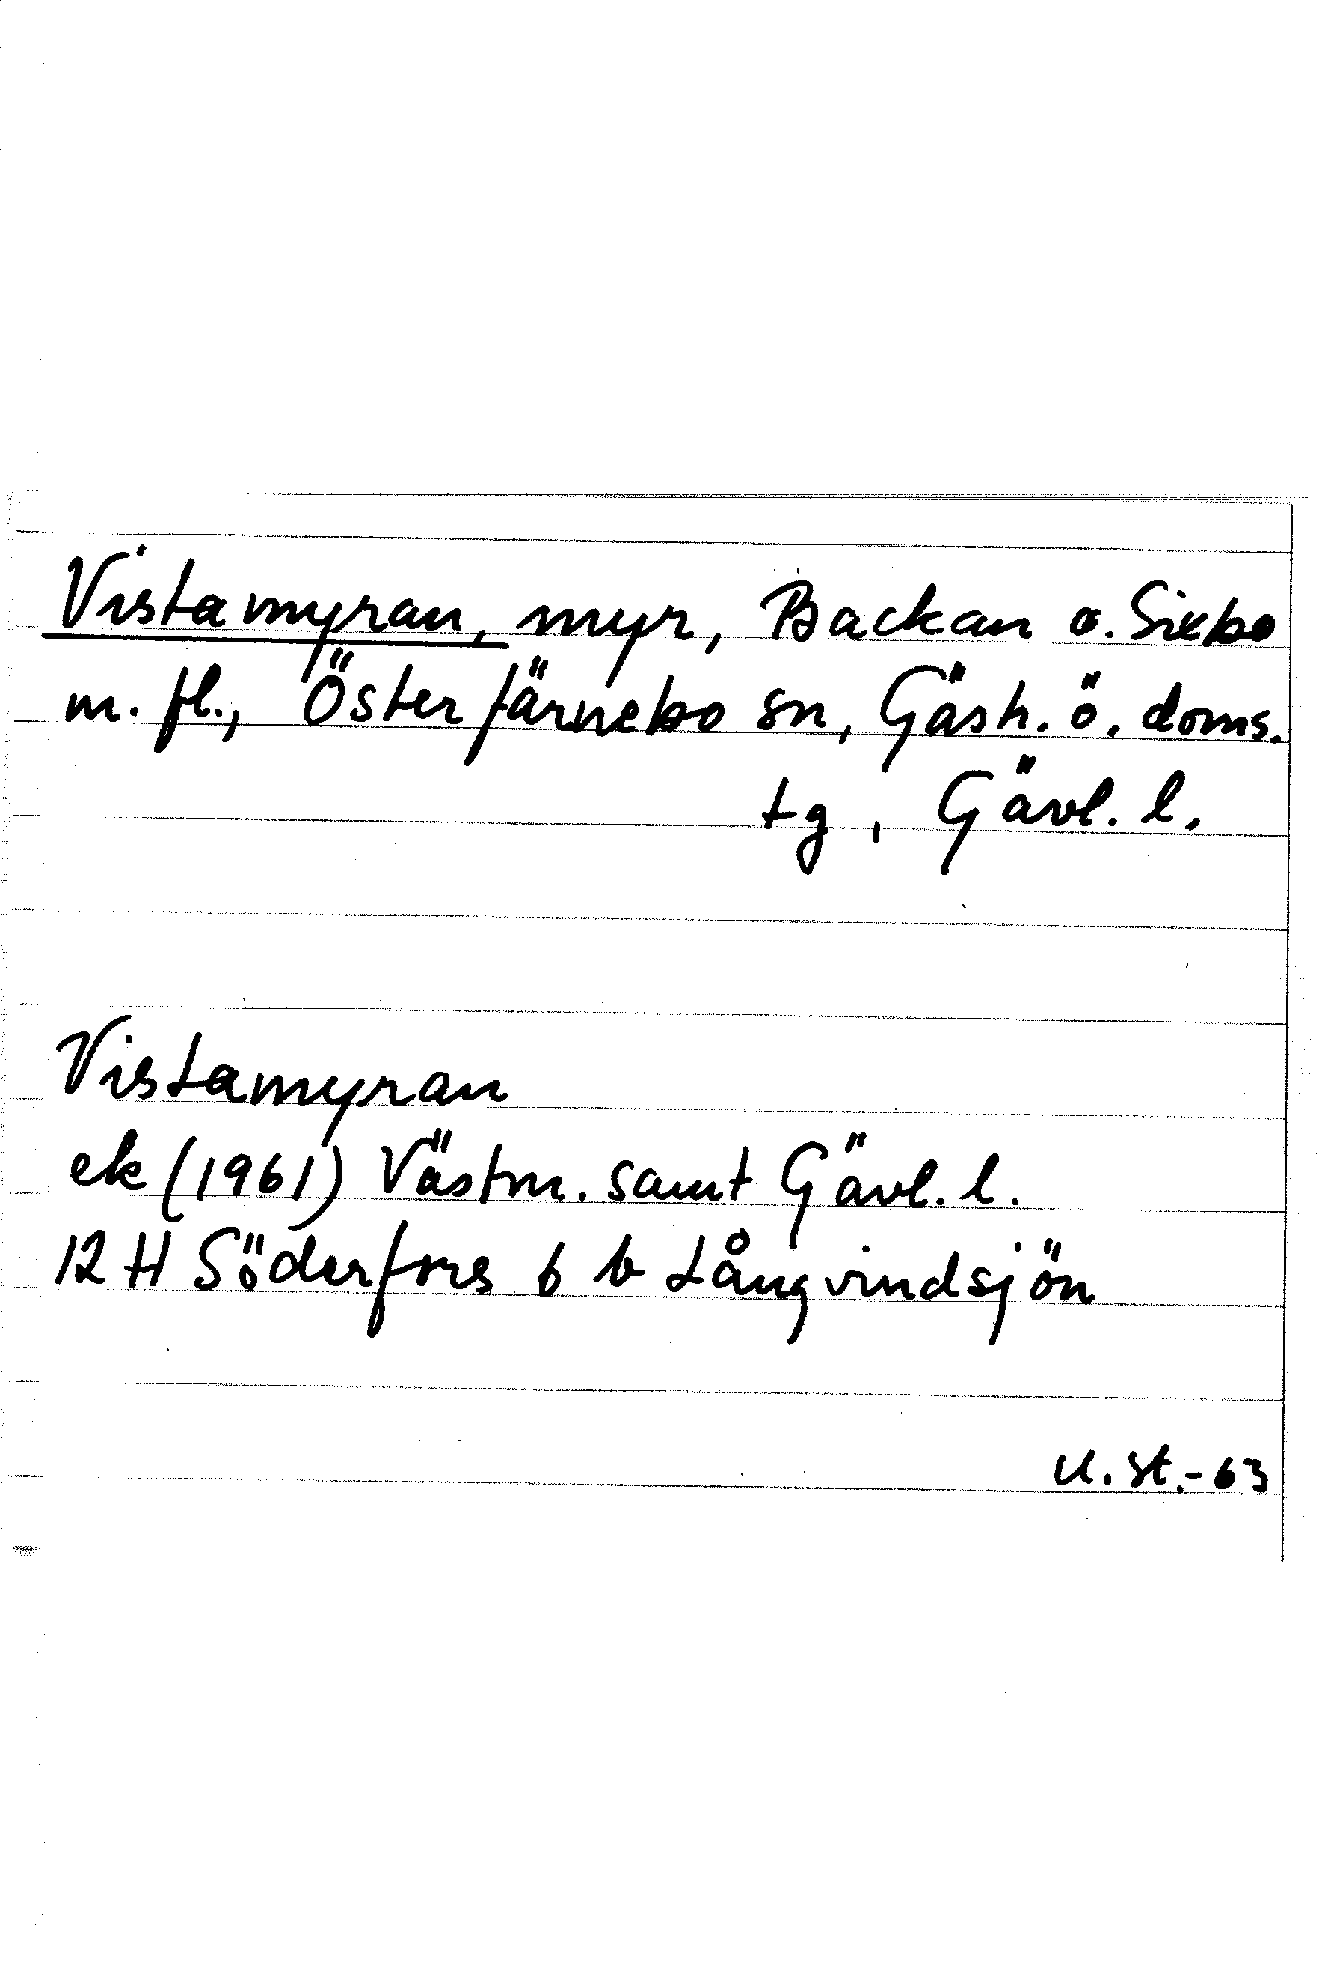 Vistamyran, myr, Backan o. Siebo
m. fl., Österfärnebo sn, Gästr. ö. doms.
tg, Gävl. l.
Vistamyran
ek (1961) Västm. samt Gävl. l.
12 H Söderfors 6 b Långvindsjön
U. St.-63